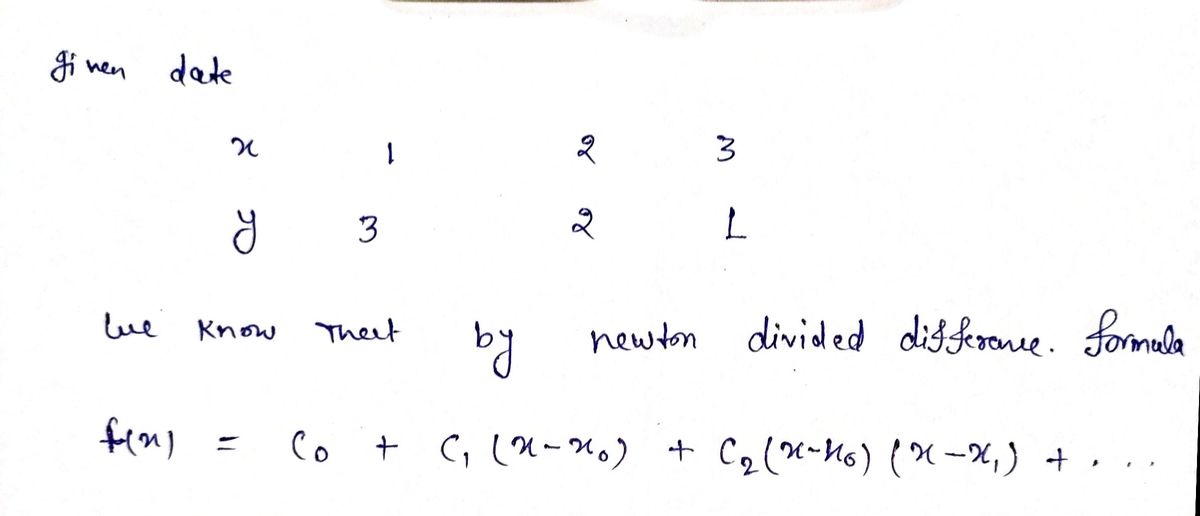 given date
x 1 2 3
y 3 2 1
We know that by newton divided difference. formula
f(x) = C₀ + C₁ (x-x₀) + C₂(x-x₀) (x-x₁) + . . . .